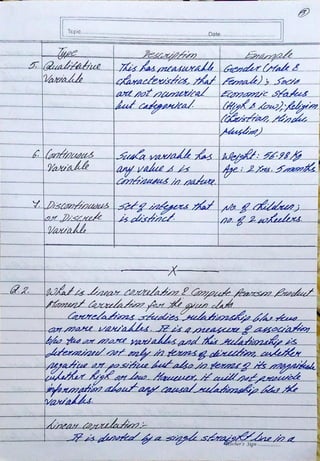 Topic
Date
Type Description Example
5. Qualitative Variable
This has measurable characteristics that are not numerical but categorical.
Gender (Male & Female); Socio Economic Status (High & Low); Religion (Christian, Hindu Muslim)
6. Continuous Variable
Such a variable has any value & is continuous in nature.
Weight: 56.98 Kg
Age: 2 Yrs. 5 months
7. Discontinuous or Discrete Variable
Set of integers that is distinct.
No. of children;
no. of 2 wheelers.
X
Q.2. What is linear correlation? Compute Pearson Product
Moment Correlation for the given data.
Correlations studies relationship b/w two
or more variables. It is a measure of association
b/w two or more variables and this relationship is
determined not only in terms of direction whether
negative or positive but also in terms of its magnitude
whether high or low. However, it will not provide
information about any causal relationship b/w the
variables.
Linear correlation:-
It is denoted by a single straight line in a
Teacher's Sign